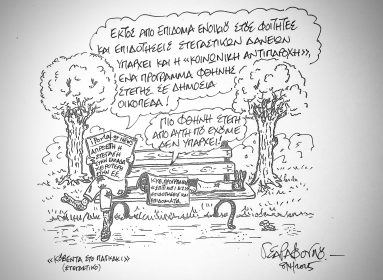 ΕΚΤΟΣ ΑΠΟ ΕΠΙΔΟΜΑ ΕΝΟΙΚΙΟΥ ΣΤΟΥΣ ΦΟΙΤΗΤΕΣ
ΚΑΙ ΕΠΙΔΟΤΗΣΕΙΣ ΣΤΕΓΑΣΤΙΚΩΝ ΔΑΝΕΙΩΝ
ΥΠΑΡΧΕΙ ΚΑΙ Η «ΚΟΙΝΩΝΙΚΗ ΑΝΤΙΠΑΡΟΧΗ»,
ΕΝΑ ΠΡΟΓΡΑΜΜΑ ΦΘΗΝΗΣ
ΣΤΕΓΗΣ ΣΕ ΔΗΜΟΣΙΑ
ΟΙΚΟΠΕΔΑ!
ΠΙΟ ΦΘΗΝΗ ΣΤΕΓΗ
ΑΠΟ ΑΥΤΗ ΠΟΥ ΕΧΟΥΜΕ
ΔΕΝ ΥΠΑΡΧΕΙ!
ΑΠΡΟΣΙΤΗ Η
ΣΤΕΓΑΣΗ
ΕΠΙΔΟΤΗΣΕΙΣ ΚΑΙ
ΕΠΙΔΟΜΑΤΑ
«ΚΟΥΒΕΝΤΑ ΣΤΟ ΠΑΓΚΑΚΙ»
(ΣΤΕΓΑΣΤΙΚΟ)